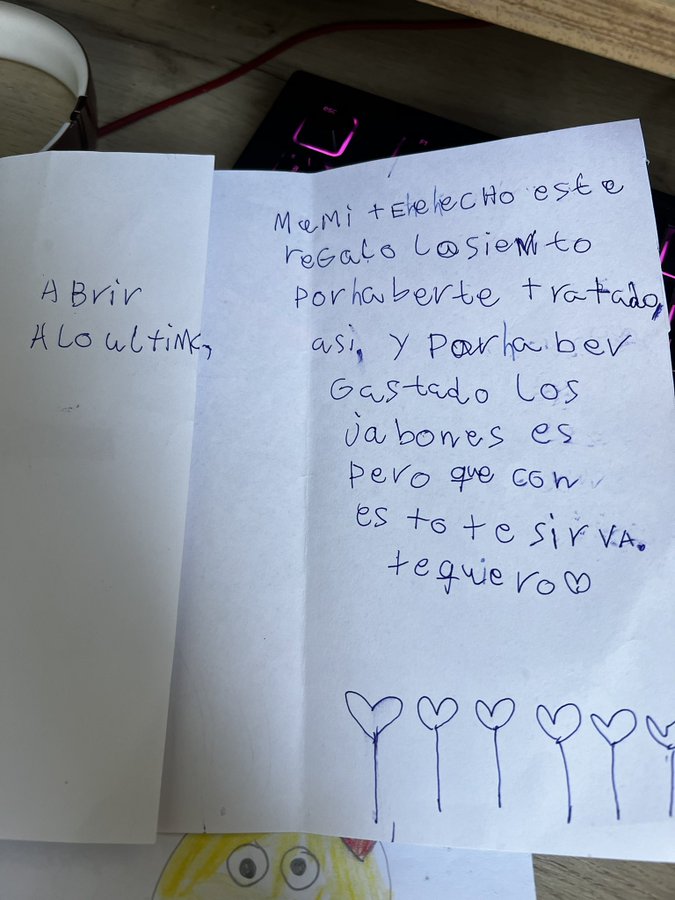 ABrir
ALO ultimo,
MaMi tEheheCHO este
reGalo Losiento
Porhaberte tratado,
asi, y Porhaber
Gastado los
jabones es
Pero que con
es to te sirva.
tequiero♡
esc